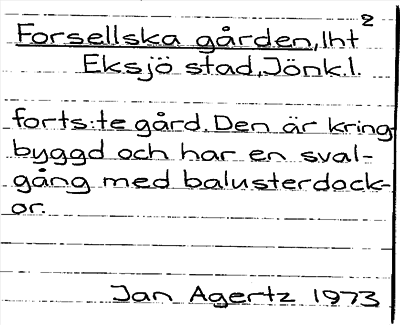 2
Forsellska gården, lht
Eksjö stad, Jönk.l.
forts:te gård. Den är kring
byggd och har en sval-
gång med balusterdock-
or.
Jan Agertz 1973